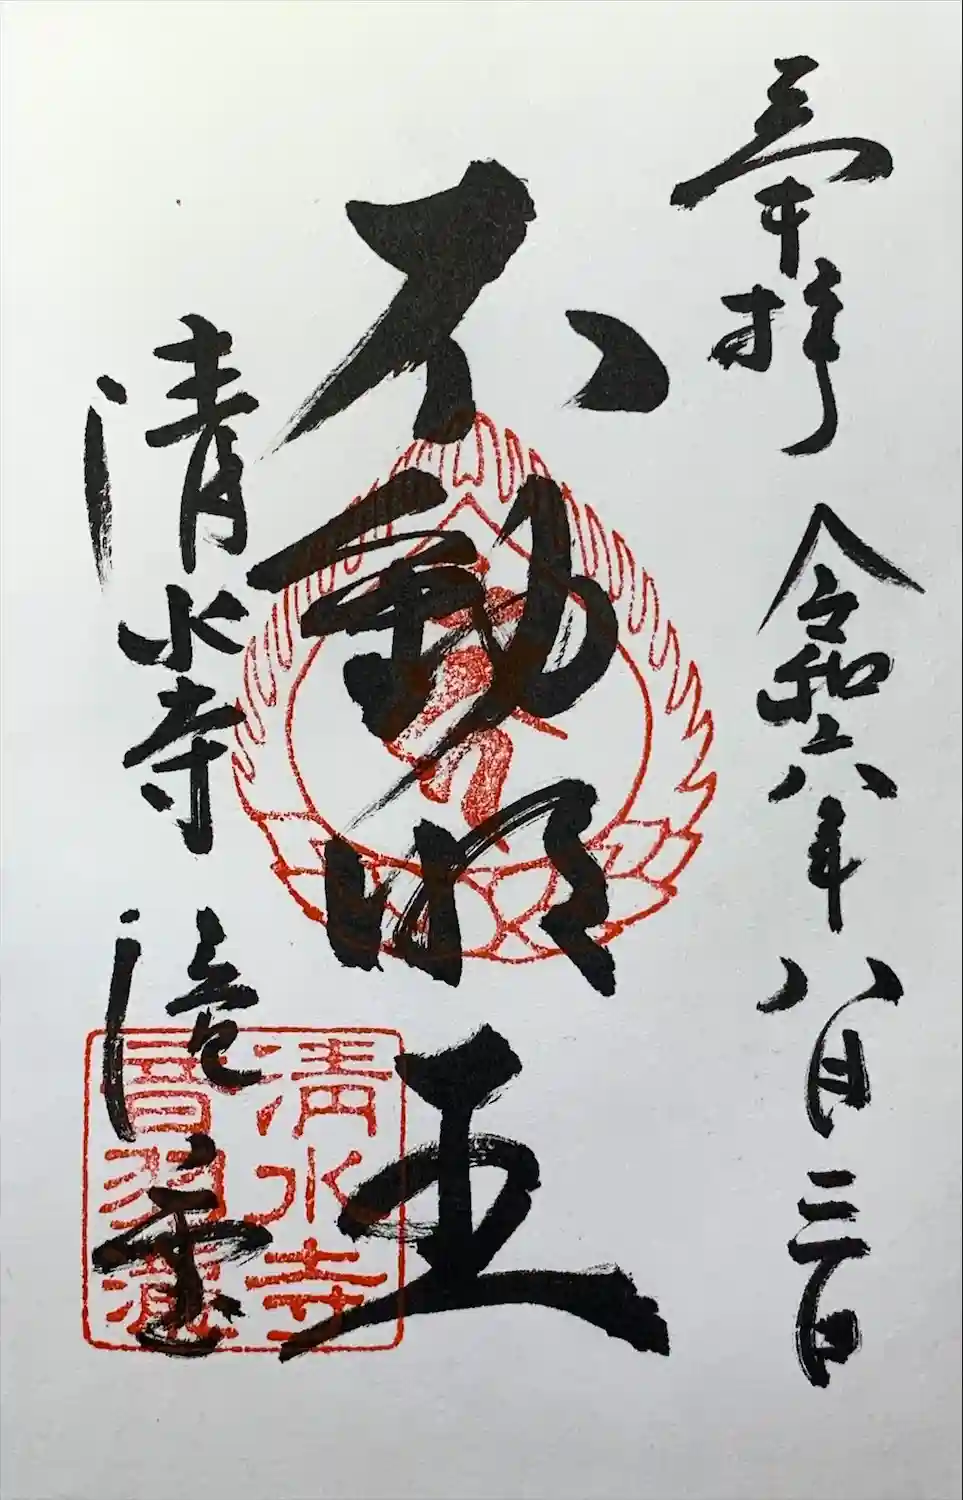 奉拝 令和六年八月三日
不動明王
清水寺 滝堂
清水寺
音羽滝